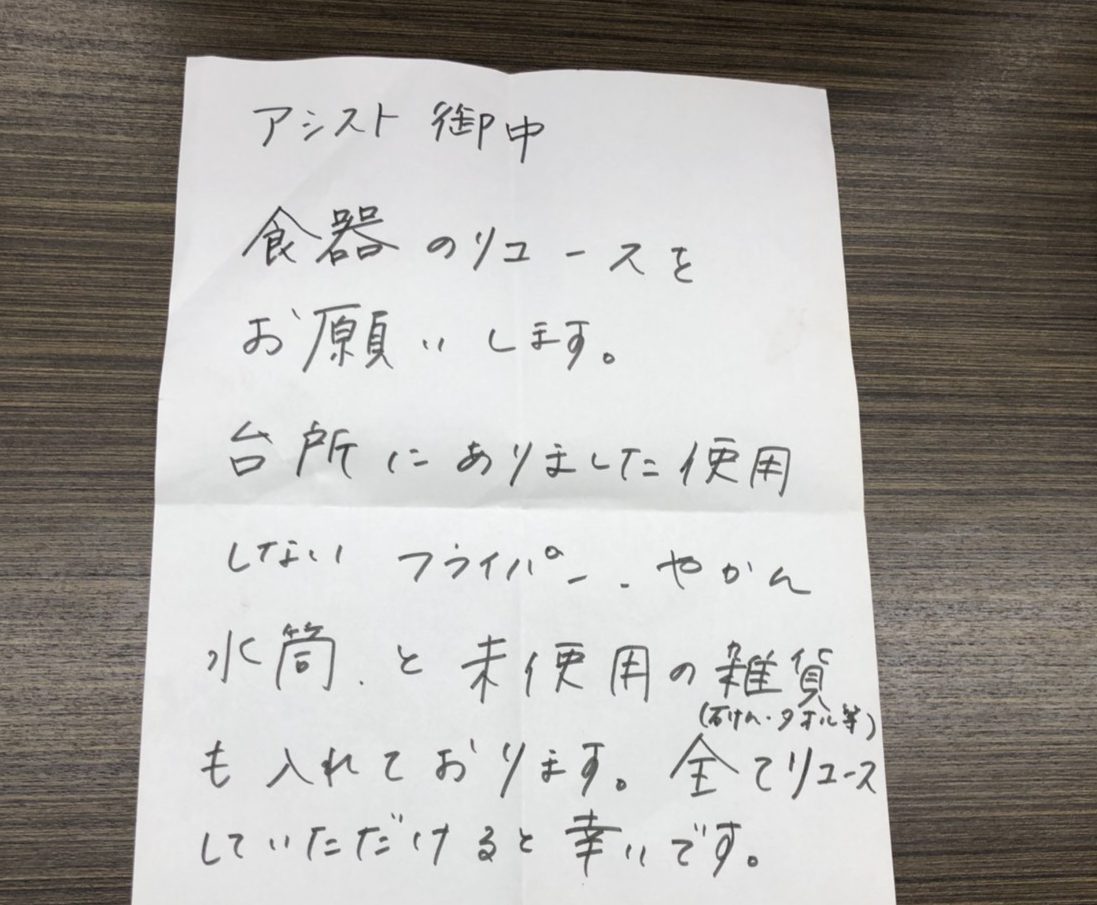 アシスト 御中
食器のリユースを
お願いします。
台所にありました使用
しないフライパン、やかん
水筒、と未使用の雑貨
(石けん・タオル等)
も入れております。全てリユース
していただけると幸いです。